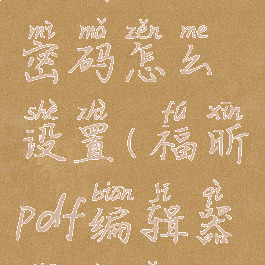 mì mǎ zěn me
密码怎么
shè zhì fú xīn
设置(福昕
biān jí qì
pdf编辑器